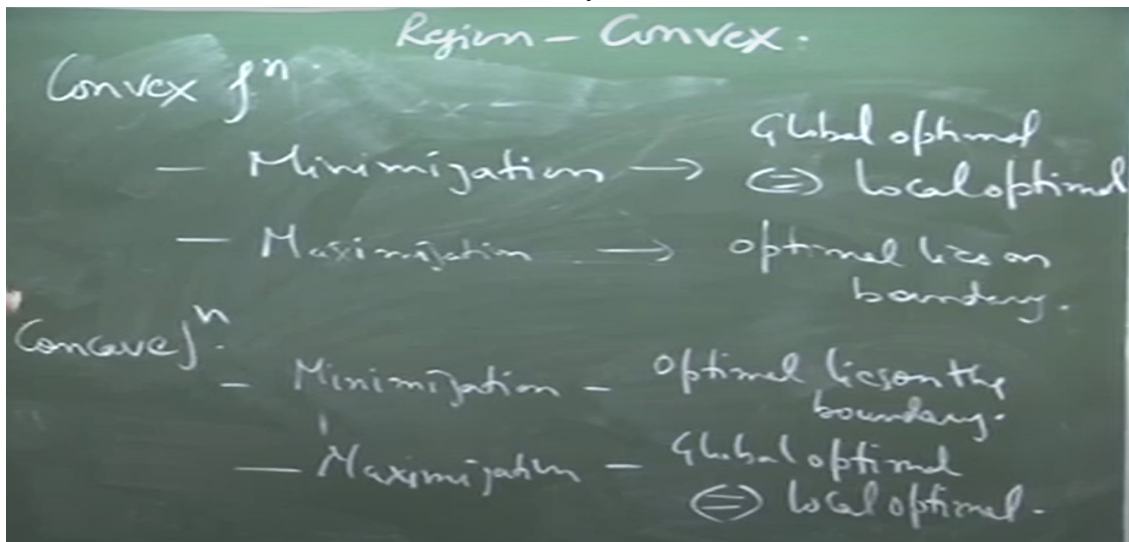 Region - Convex.
Convex fⁿ.
- Minimization → Global optimal
⇔ local optimal
- Maximization → optimal lies on
boundary.
Concave fⁿ.
- Minimization - Optimal lies on the
boundary.
- Maximization - Global optimal
⇔ local optimal.